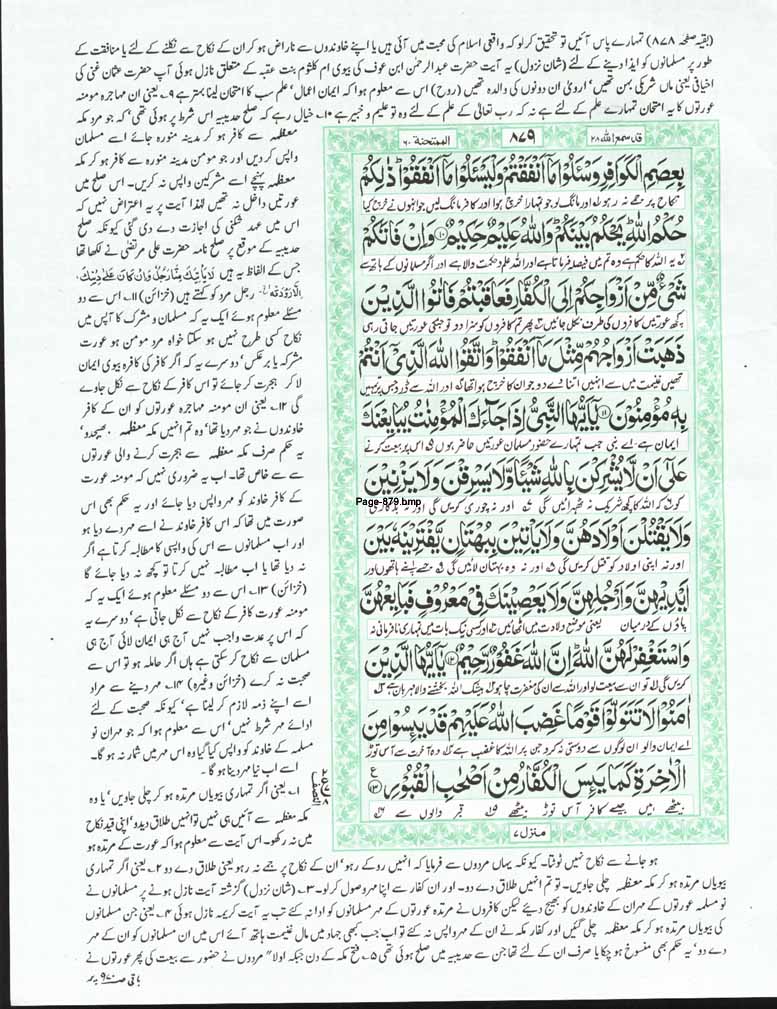 (بقیہ صفحہ ۸۷۸) تمہارے پاس آئیں تو تحقیق کرلو کہ واقعی اسلام کی محبت میں آئی ہیں یا اپنے خاوندوں سے ناراض ہو کر ان کے نکاح سے نکلنے کے لئے یا منافقت کے
طور پر مسلمانوں کو ایذا دینے کے لئے (شان نزول) یہ آیت حضرت عبدالرحمٰن ابن عوف کی بیوی ام کلثوم بنت عقبہ کے متعلق نازل ہوئی آپ حضرت عثمان غنی کی
اخیافی یعنی ماں شریکی بہن تھیں' ارویٰ ان دونوں کی والدہ تھیں (روح) اس سے معلوم ہوا کہ ایمان اعمال' علم سب کا امتحان لینا بہتر ہے ۹۔ یعنی ان مہاجرہ مومنہ
عورتوں کا یہ امتحان تمہارے علم کے لئے ہے نہ کہ رب تعالیٰ کے علم کے لئے وہ تو علیم و خبیر ہے ۱۰۔ خیال رہے کہ صلح حدیبیہ اس شرط پر ہوئی تھی' کہ جو مرد مکہ
معظمہ سے کافر ہو کر مدینہ منورہ جائے اسے مسلمان
واپس کر دیں اور جو مومن مدینہ منورہ سے کافر ہو کر مکہ
معظمہ پہنچے اسے مشرکین واپس نہ کریں۔ اس صلح میں
عورتیں داخل نہ تھیں لہٰذا آیت پر یہ اعتراض نہیں کہ
اس میں عہد شکنی کی اجازت دے دی گئی کیونکہ صلح
حدیبیہ کے موقع پر صلح نامہ حضرت علی مرتضٰی نے لکھا تھا
جس کے الفاظ یہ ہیں لَا یَاْتِیْكَ مِنَّا رَجُلٌ وَاِنْ كَانَ عَلٰی دِیْنِكَ
اِلَّا رَدَدْتَّهٗ۔ رجل مرد کو کہتے ہیں (خزائن) ۱۱۔ اس سے دو
مسئلے معلوم ہوئے ایک یہ کہ مسلمان و مشرک کا آپس میں
نکاح کسی طرح نہیں ہو سکتا خواہ مرد مومن ہو عورت
مشرکہ یا برعکس' دوسرے یہ کہ اگر کافر کی کافرہ بیوی ایمان
لا کر ہجرت کر جائے تو اس کافر کے نکاح سے نکل جاوے
گی ۱۲۔ یعنی ان مومنہ مہاجرہ عورتوں کو ان کے کافر
خاوندوں نے جو مہر دیا تھا' وہ تم انہیں مکہ معظمہ بھیجدو'
یہ حکم صرف مکہ معظمہ سے ہجرت کرنے والی عورتوں
سے خاص تھا۔ اب یہ ضروری نہیں کہ مومنہ عورت
کے کافر خاوند کو مہر واپس دیا جائے اور یہ حکم بھی اس
صورت میں تھا کہ اس کافر خاوند نے اسے مہر دے دیا ہو
اور اب مسلمانوں سے اس کی واپسی کا مطالبہ کرتا ہے اگر
نہ دیا تھا یا اب مطالبہ نہیں کرتا تو کچھ نہ دیا جائے گا
(خزائن) ۱۳۔ اس سے دو مسئلے معلوم ہوئے ایک یہ کہ
مومنہ عورت کافر کے نکاح سے نکل جاتی ہے' دوسرے یہ
کہ اس پر عدت واجب نہیں آج ہی ایمان لائی آج ہی
مسلمان سے نکاح کر سکتی ہے ہاں اگر حاملہ ہو تو اس سے
صحبت نہ کرے (خزائن وغیرہ) ۱۴۔ مہر دینے سے مراد
اسے اپنے ذمہ لازم کر لینا ہے' کیونکہ صحبت کے لئے
ادائے مہر شرط نہیں' اس سے معلوم ہوا کہ جو مہران نو
مسلمہ کے خاوند کو واپس کیا گیا وہ اس مہر میں شمار نہ ہو گا۔
اسے اب نیا مہر دینا ہو گا۔
۱۔ یعنی اگر تمہاری بیویاں مرتدہ ہو کر چلی جاویں' یا وہ
مکہ معظمہ سے آئیں ہی نہیں تو انہیں طلاق دیدو' اپنی قید نکاح
میں نہ رکھو۔ اس آیت سے معلوم ہوا کہ عورت کے مرتدہ ہو
قد سمع اللہ ۲۸
۸۷۹
الممتحنۃ ۶۰
بِعِصَمِ الْكَوَافِرِ وَسْـَٔلُوْا مَاۤ اَنْفَقْتُمْ وَلْیَسْـَٔلُوْا مَاۤ اَنْفَقُوْا ؕ ذٰلِكُمْ
نکاح پر جمے نہ رہو اور مانگ لو جو تمہارا خرچ ہوا اور کافر مانگ لیں جو انہوں نے خرچ کیا
حُكْمُ اللّٰهِ ؕ یَحْكُمُ بَیْنَكُمْ ؕ وَاللّٰهُ عَلِیْمٌ حَكِیْمٌ ۝۱۰ وَاِنْ فَاتَكُمْ
یہ اللہ کا حکم ہے وہ تم میں فیصلہ فرماتا ہے اور اللہ علم و حکمت والا ہے اور اگر مسلمانوں کے ہاتھ سے
شَیْءٌ مِّنْ اَزْوَاجِكُمْ اِلَی الْكُفَّارِ فَعَاقَبْتُمْ فَاٰتُوا الَّذِیْنَ
کچھ عورتیں کافروں کی طرف نکل جائیں پھر تم کافروں کو سزا دو تو جن کی عورتیں جاتی رہی
ذَهَبَتْ اَزْوَاجُهُمْ مِّثْلَ مَاۤ اَنْفَقُوْا ؕ وَاتَّقُوا اللّٰهَ الَّذِیْۤ اَنْتُمْ
تھیں غنیمت میں سے انہیں اتنا دے دو جو ان کا خرچ ہوا تھا اور اللہ سے ڈرو جس پر تمہیں
بِهٖ مُؤْمِنُوْنَ ۝۱۱ یٰۤاَیُّهَا النَّبِیُّ اِذَا جَآءَكَ الْمُؤْمِنٰتُ یُبَایِعْنَكَ
ایمان ہے اے نبی جب تمہارے حضور مسلمان عورتیں حاضر ہوں اس پر بیعت کرنے
عَلٰۤی اَنْ لَّا یُشْرِكْنَ بِاللّٰهِ شَیْـًٔا وَّلَا یَسْرِقْنَ وَلَا یَزْنِیْنَ
کو کہ اللہ کا کچھ شریک نہ ٹھہرائیں گی اور نہ چوری کریں گی اور نہ بدکاری
Page-879.bmp
وَلَا یَقْتُلْنَ اَوْلَادَهُنَّ وَلَا یَاْتِیْنَ بِبُهْتَانٍ یَّفْتَرِیْنَهٗ بَیْنَ
اور نہ اپنی اولاد کو قتل کریں گی اور نہ وہ بہتان لائیں گی جسے اپنے ہاتھوں اور
اَیْدِیْهِنَّ وَاَرْجُلِهِنَّ وَلَا یَعْصِیْنَكَ فِیْ مَعْرُوْفٍ فَبَایِعْهُنَّ
پاؤں کے درمیان یعنی موضع ولادت میں اٹھائیں اور کسی نیک بات میں تمہاری نافرمانی نہ
وَاسْتَغْفِرْ لَهُنَّ اللّٰهَ ؕ اِنَّ اللّٰهَ غَفُوْرٌ رَّحِیْمٌ ۝۱۲ یٰۤاَیُّهَا الَّذِیْنَ
کریں گی تو ان سے بیعت لو اور اللہ سے ان کی مغفرت چاہو بیشک اللہ بخشنے والا مہربان ہے
اٰمَنُوْا لَا تَتَوَلَّوْا قَوْمًا غَضِبَ اللّٰهُ عَلَیْهِمْ قَدْ یَىِٕسُوْا مِنَ
اے ایمان والو ان لوگوں سے دوستی نہ کرو جن پر اللہ کا غضب ہے وہ آخرت سے آس توڑ
الْاٰخِرَةِ كَمَا یَىِٕسَ الْكُفَّارُ مِنْ اَصْحٰبِ الْقُبُوْرِ ۝۱۳
بیٹھے ہیں جیسے کافر آس توڑ بیٹھے قبر والوں سے
منزل ۷
ہو جانے سے نکاح نہیں ٹوٹتا۔ کیونکہ یہاں مردوں سے فرمایا کہ انہیں روکے رہو' ان کے نکاح پر جمے نہ رہو یعنی طلاق دے دو ۲۔ یعنی اگر تمہاری
بیویاں مرتدہ ہو کر مکہ معظمہ چلی جاویں۔ تو تم انہیں طلاق دے دو۔ اور ان کفار سے اپنا مہر وصول کر لو۔ ۳۔ (شان نزول) گزشتہ آیت نازل ہونے پر مسلمانوں نے
نو مسلمہ عورتوں کے مہران کے خاوندوں کو بھیج دیئے لیکن کافروں نے مرتدہ عورتوں کے مہر مسلمانوں کو ادا نہ کئے تب یہ آیت کریمہ نازل ہوئی ۴۔ یعنی جن مسلمانوں
کی بیویاں مرتدہ ہو کر مکہ معظمہ چلی گئیں اور کفار مکہ نے ان کے مہر واپس نہ کئے تو اب جب کبھی جہاد میں مال غنیمت ہاتھ آئے اس میں ان مسلمانوں کو ان کے مہر
دے دو' یہ حکم بھی منسوخ ہو چکا یا صرف ان کے لئے تھا جن سے حدیبیہ میں صلح ہوئی تھی ۵۔ فتح مکہ کے دن جبکہ اولا" مردوں نے حضور سے بیعت کی پھر عورتوں نے
باقی صـ ۹۷۰ پر